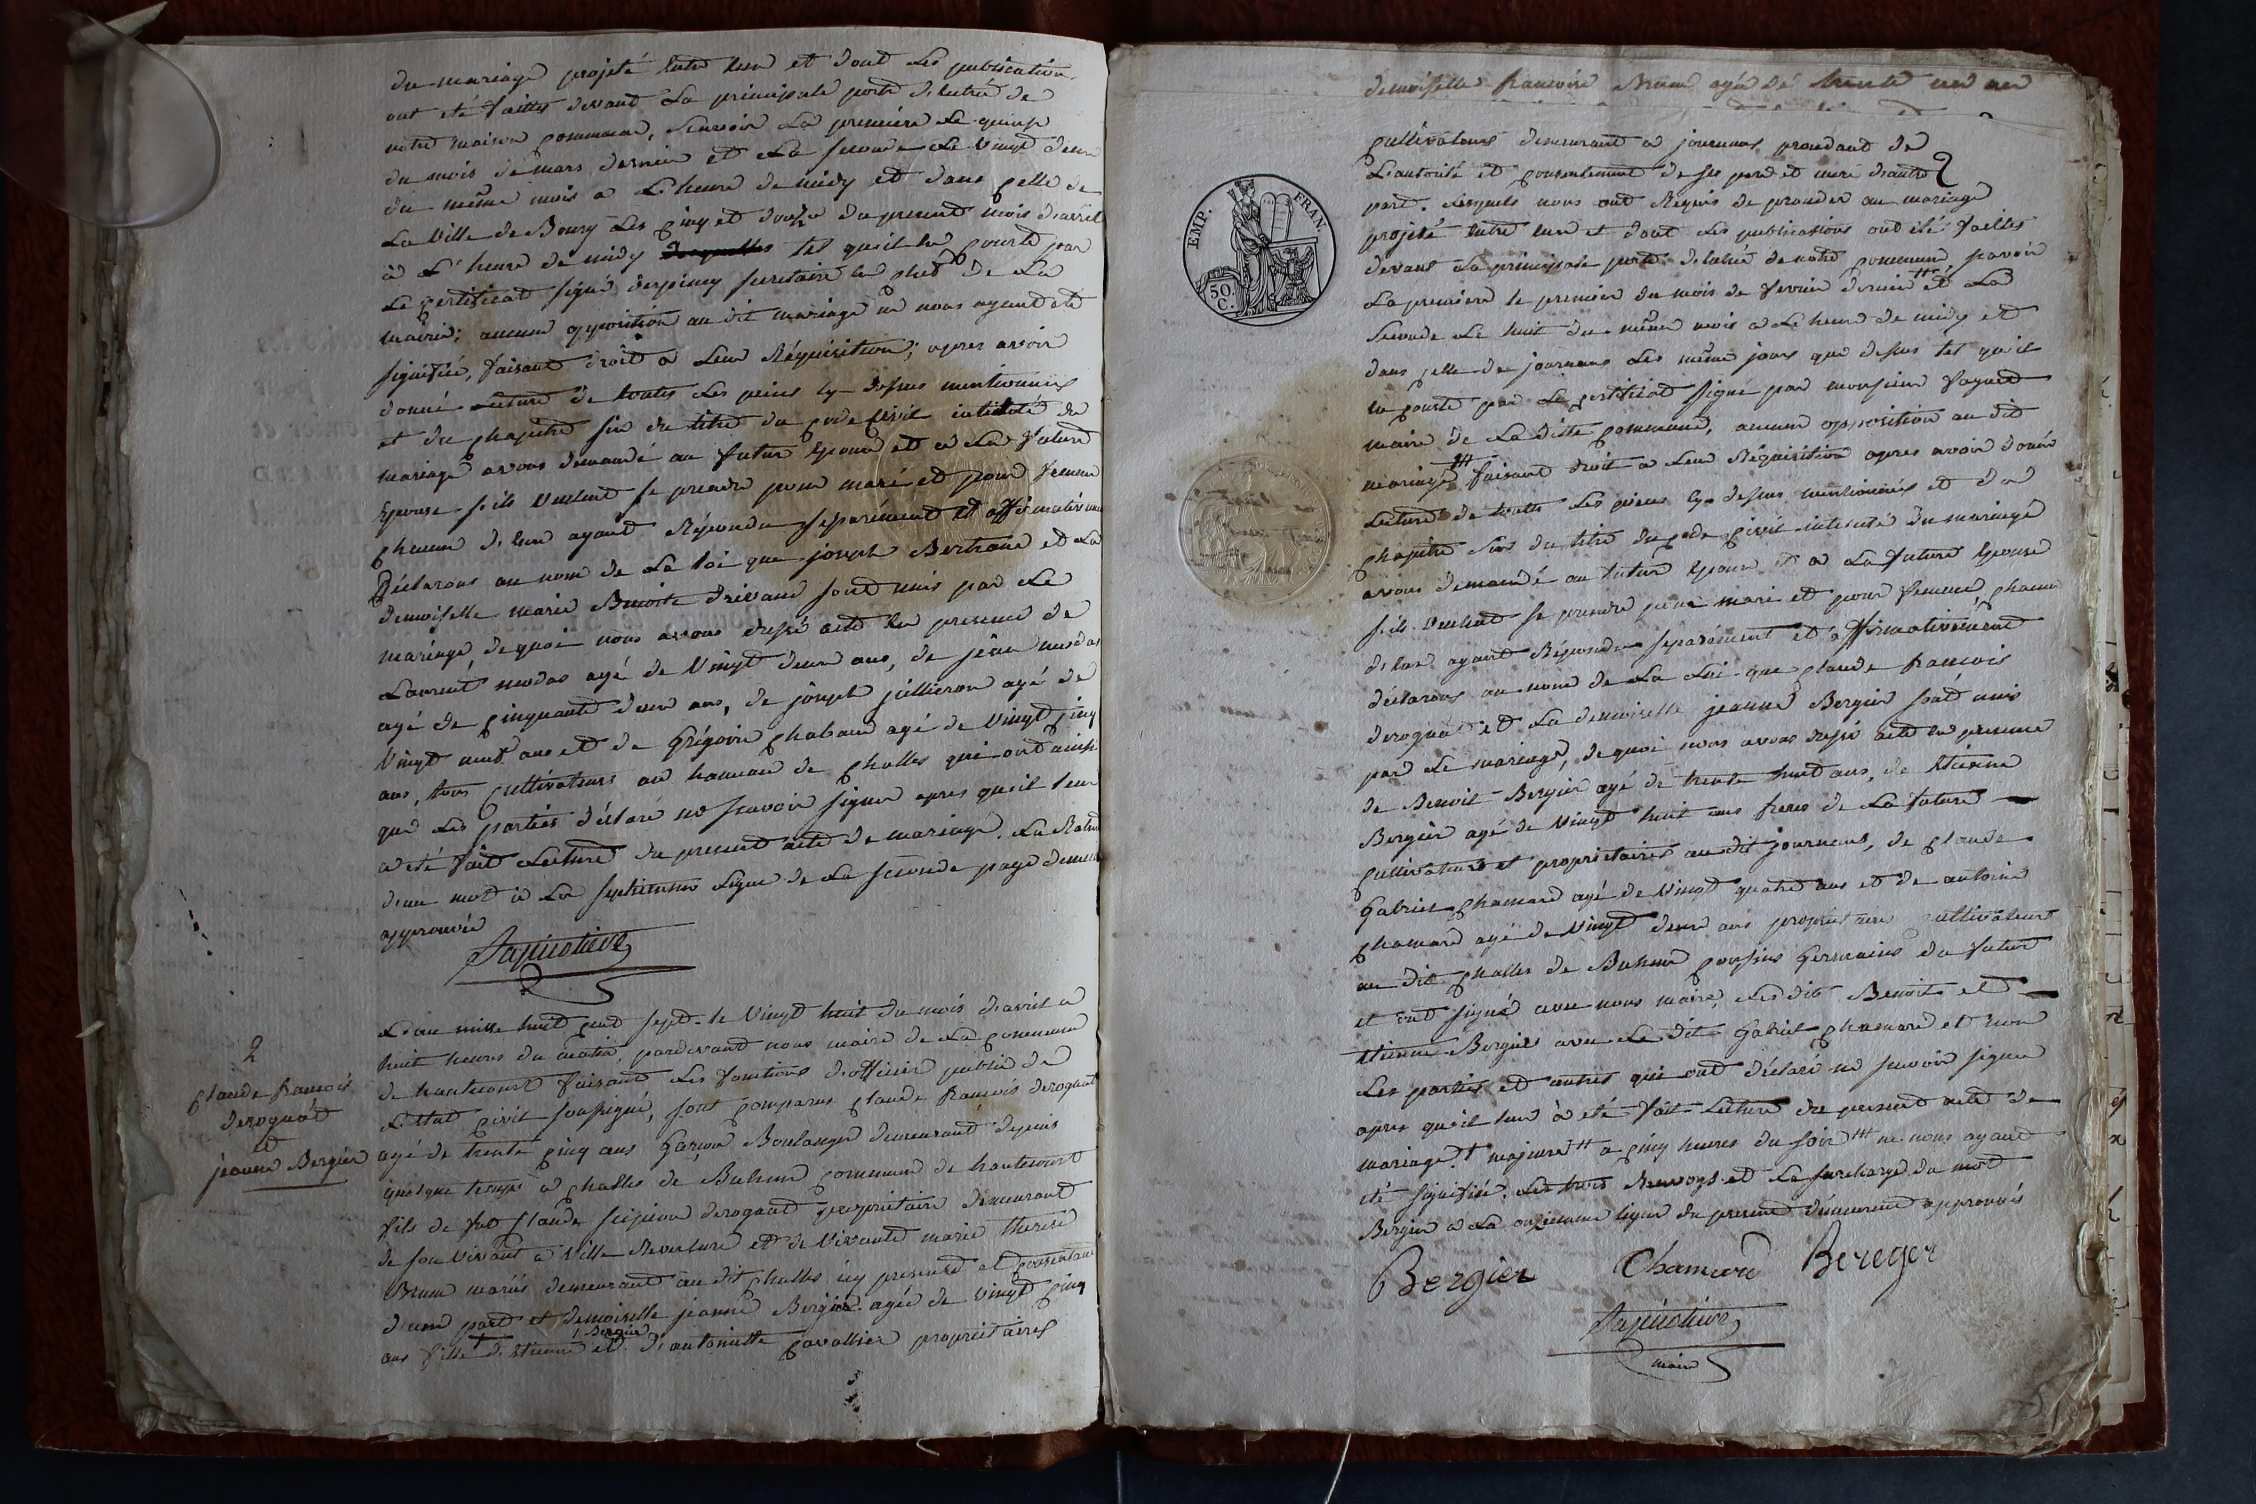 du mariage projeté entre eux et dont les publications
ont été faittes devant la principale porte d'entrée de
notre maison commune, scavoir la première le quinze
du mois de mars dernier et la seconde le vingt deux
du même mois a l'heure de midy et dans celle de
la ville de Bourg les cinq et douze du present mois d'avril
à l'heure de midy tel qu'il en conste par
le certificat signé secretaire en chef de la
mairie; aucune opposition au dit mariage ne nous ayant été
signifiée, faisant droit a leur réquisition; apres avoir
donné lecture de toutes les pieces cy dessus mentionnées
et du chapitre six du titre du code civil intitulé du
mariage avons demandé au futur epoux et a la future
epouse s'ils veulent se prendre pour mari et pour femme
chacun d'eux ayant répondu séparément et affirmativement
déclarons au nom de la loi que joseph Bertrand et la
demoiselle marie Benoite drivand sont unis par le
mariage, de quoi nous avons dressé acte en presence de
Laurent modas agé de vingt deux ans, de jean modas
agé de cinquante deux ans, de joseph jullieron agé de
vingt neuf ans et de Grégoire chabaud agé de vingt cinq
ans, tous cultivateurs au hameau de challes qui ont ainsi
que les parties déclaré ne scavoir signer apres qu'il leur
a eté fait lecture du present acte de mariage. La Rature
d'un mot à la septieme ligne de la seconde page demeure
approuvée
2
claude francois
derognat
et
jeanne Bergier
L'an mille huit cent sept le vingt huit du mois d'avril a
huit heures du matin, pardevant nous maire de la commune
de hautecourt faisant les fonctions d'officier public de
l'etat civil soussigné, sont comparus claude francois derognat
agé de trente cinq ans garcon Boulanger demeurant depuis
quelque temps a challes de Bohem commune de hautecourt
fils de feu claude scipion derognat propriétaire demeurant
de son vivant à ville Reversure et de vivante marie therese
Brun mariés demeurant au dit challes icy presente et consentante
d'une part et demoiselle jeanne Bergier agée de vingt cinq
Bergier
ans fille † d'etienne et d'antoinette cavallier propriétaires
demoiselle francoise Brun agée de trente un an
EMP. FRAN.
50 C.
cultivateurs demeurant a journans procedant de
l'autorité et consentement de ses pere et mere d'autre
part. Lesquels nous ont requis de proceder au mariage
projeté entre eux et dont les publications ont été faittes
devant la principale porte d'entrée de notre commune scavoir
la premiere le premier du mois de fevrier dernier †† et la
seconde le huit du même mois a l'heure de midy et
dans celle de journans les même jours que dessus tel qu'il
en conste par le certificat signé par monsieur
maire de la ditte commune, aucune opposition au dit
mariage ††† faisant droit a leur réquisition apres avoir donné
lecture de toutes les pieces cy dessus mentionnées et du
chapitre six du titre du code civil intitulé du mariage
avons demandé au futur epoux et a la future epouse
s'ils veulent se prendre pour mari et pour femme, chacun
d'eux ayant répondu séparément et affirmativement
déclarons au nom de la loi que claude francois
derognat et la demoiselle jeanne Bergier sont unis
par le mariage, de quoi nous avons dressé acte en presence
de Benoit Bergier agé de trente huit ans, de etienne
Bergier agé de vingt huit ans freres de la future
cultivateurs et proprietaires au dit journans, de claude
Gabriel chamard agé de vingt quatre ans et de antoine
chamard agé de vingt deux ans proprietaires cultivateurs
au dit challes de Bohem cousins germains du futur
et ont signé avec nous maire, les dits Benoit et
etienne Bergier avec le dit Gabriel chamard et non
les parties et autres qui ont déclaré ne scavoir signer
apres qu'il leur à eté fait lecture du present acte de
mariage. † majeure †† a cinq heures du soir ††† ne nous ayant
été signifiée. Les trois Renvoys et la surcharge du mot
Bergier a la onzieme ligne du present demeurent approuvés
Bergier Chamard Bereger
maire